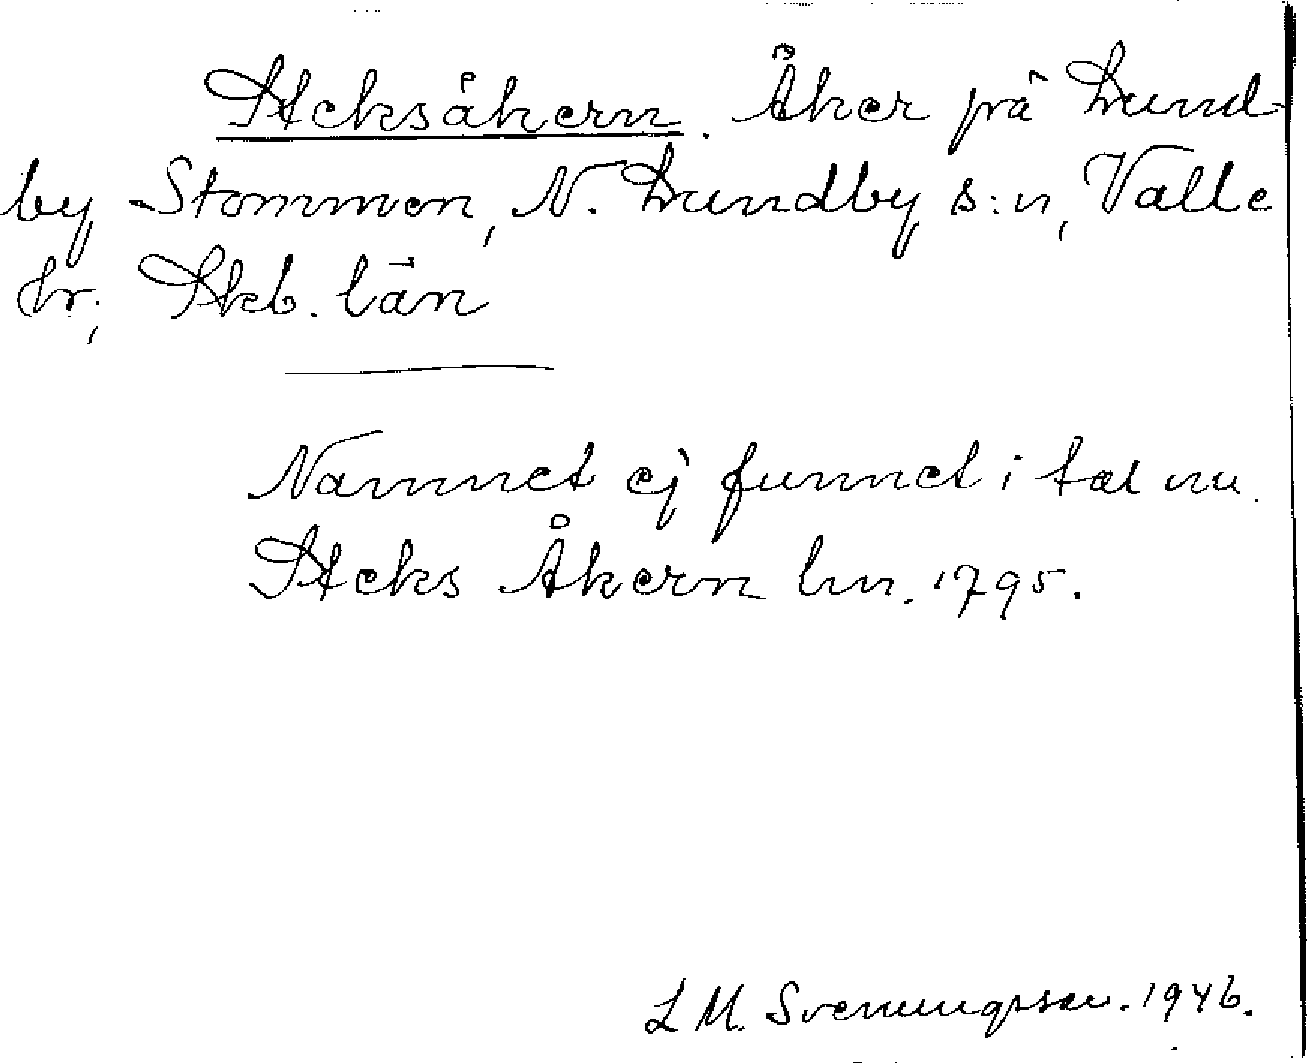 Steksåkern. Åker på Lund-
by Stommen, N. Lundby s:n, Valle
hr, Skb. län
Namnet ej funnet i tal nu.
Steks Åkern hn. 1795.
L M. Svenungsson. 1946.